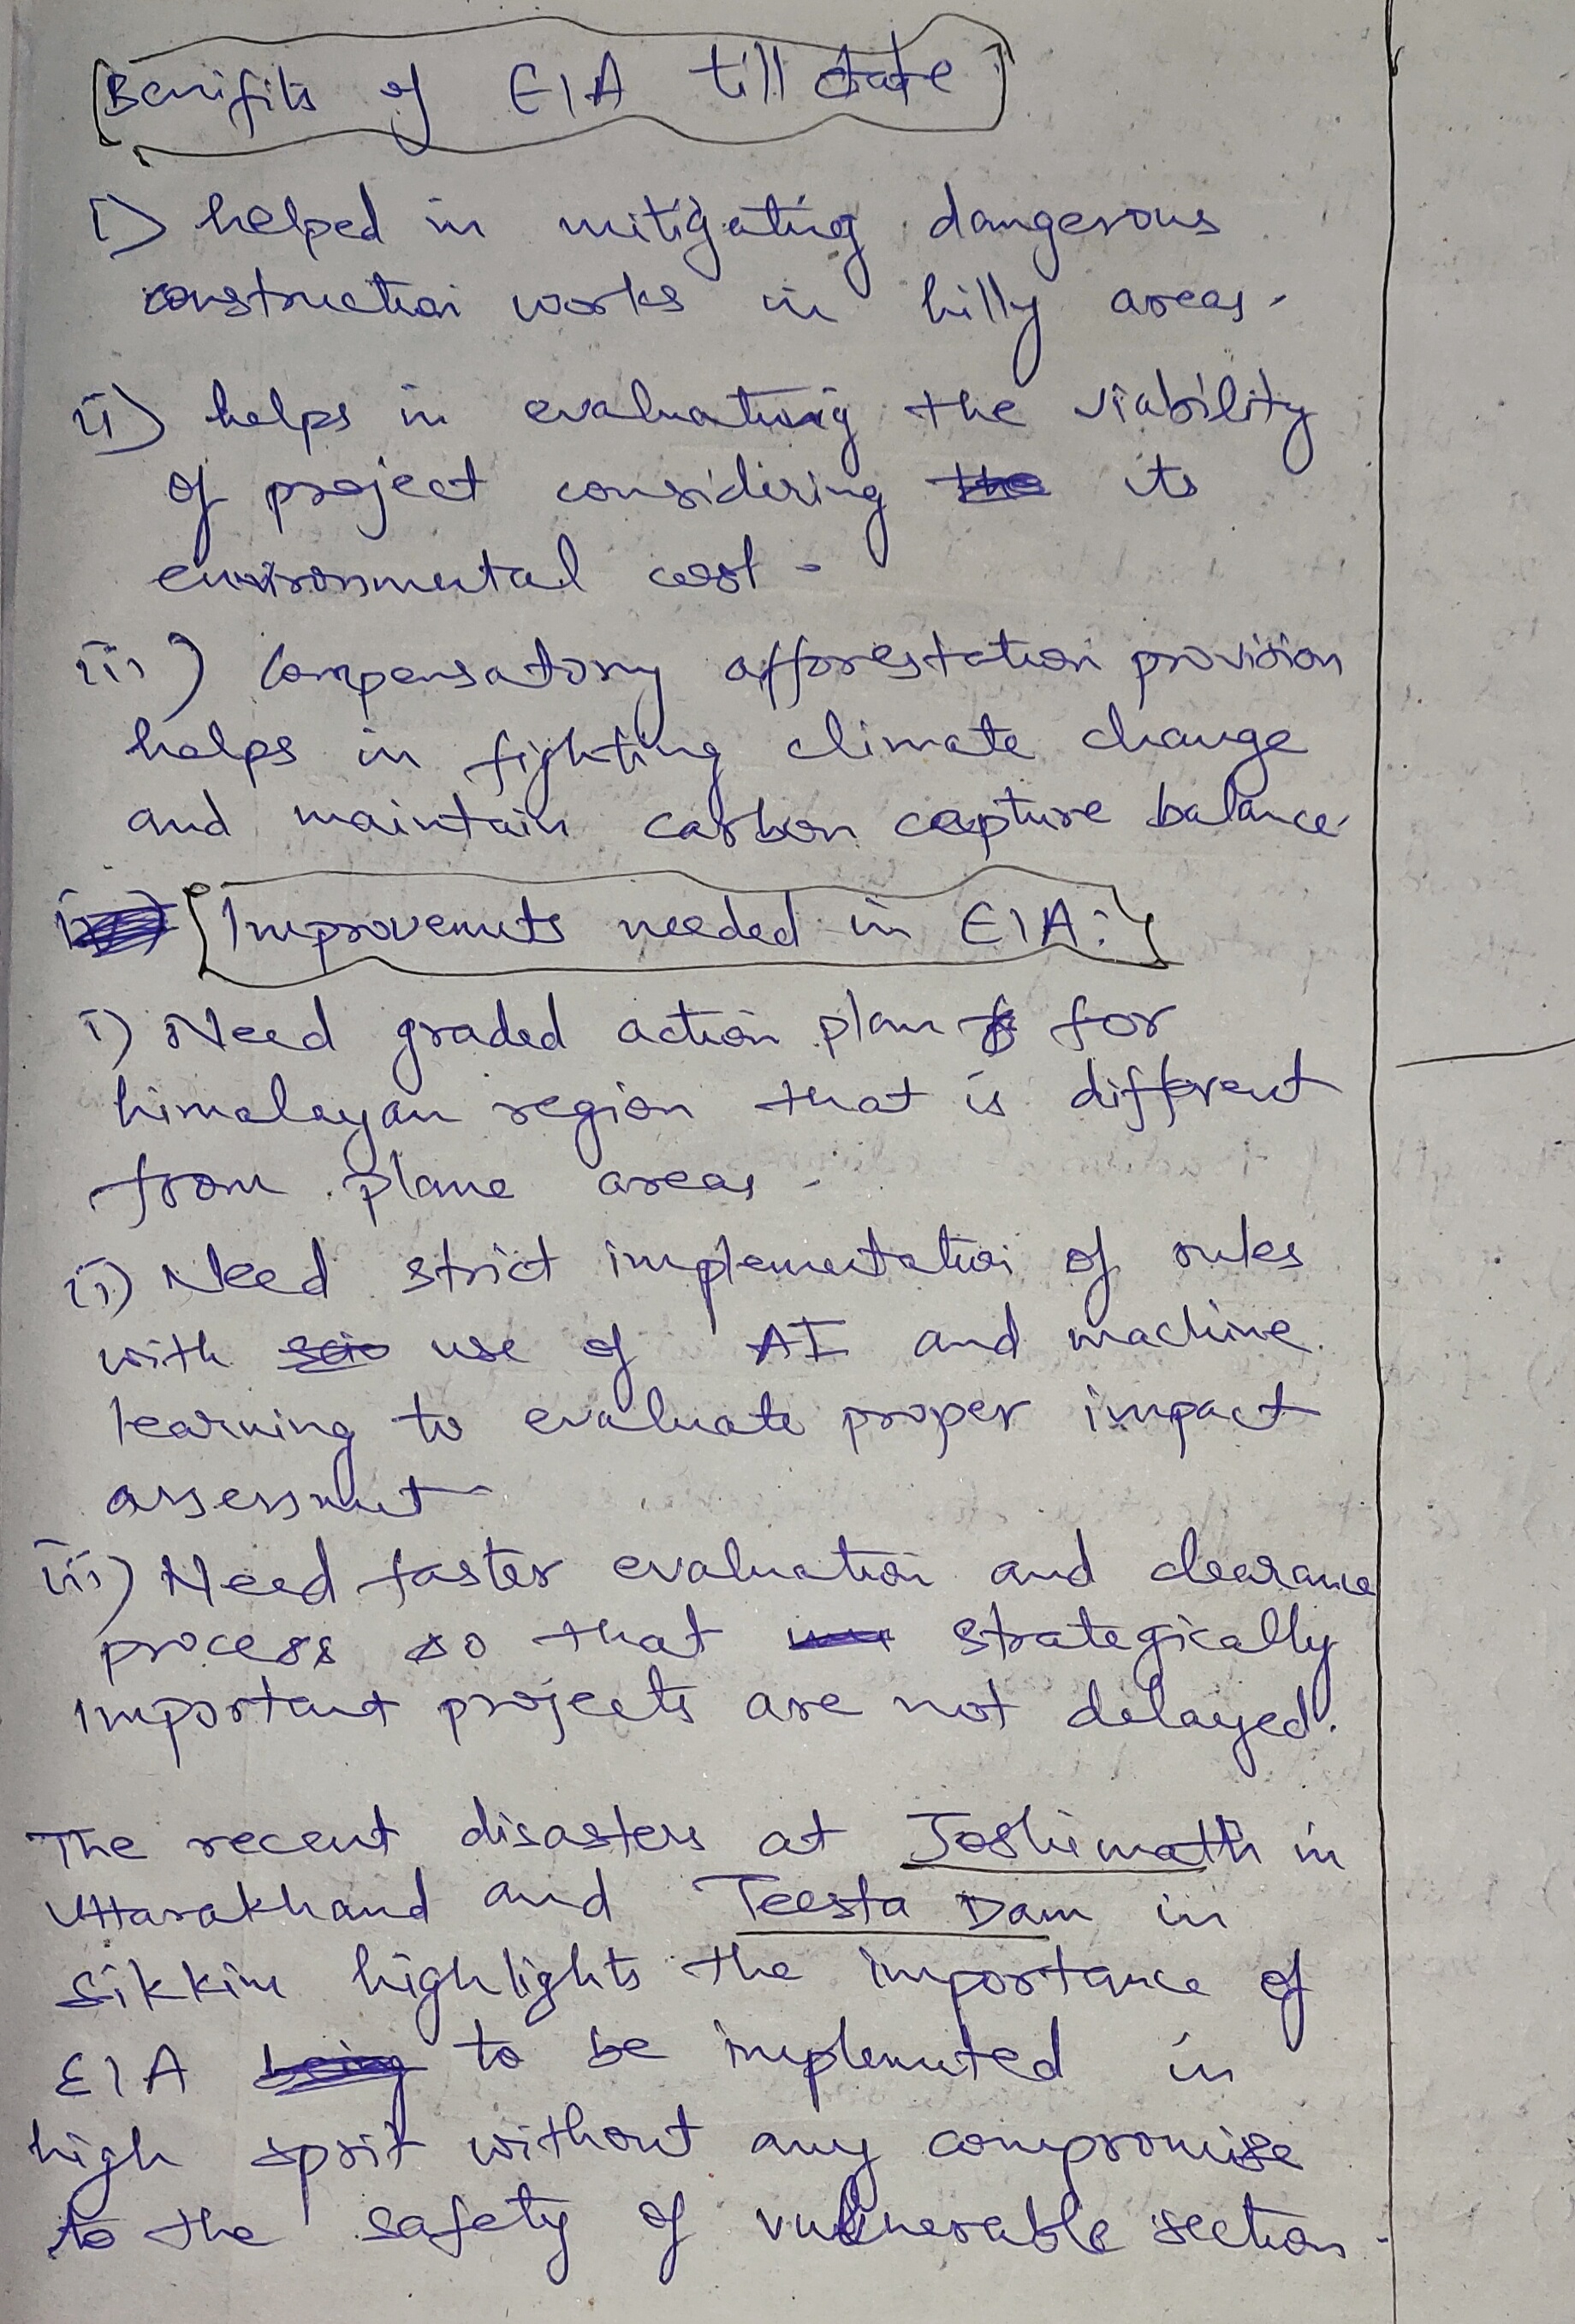 Benifits of EIA till date
i) helped in mitigating dangerous
construction works in hilly areas.
ii) helps in evaluating the viability
of project considiring the its
environmental cost.
iii) Compensatory afforestation provision
helps in fighting climate change
and maintain carbon capture balance.
Improvements needed in EIA:
i) Need graded action plan for
himalayan region that is different
from plane areas.
ii) Need strict implementation of rules
with scie use of AI and machine
learning to evaluate proper impact
assessment
iii) Need faster evaluation and clearance
process so that strategically
important projects are not delayed.
The recent disasters at Joshimath in
Uttarakhand and Teesta Dam in
Sikkim highlights the importance of
EIA being to be implemented in
high sprit without any compromise
to the safety of vulnerable section.